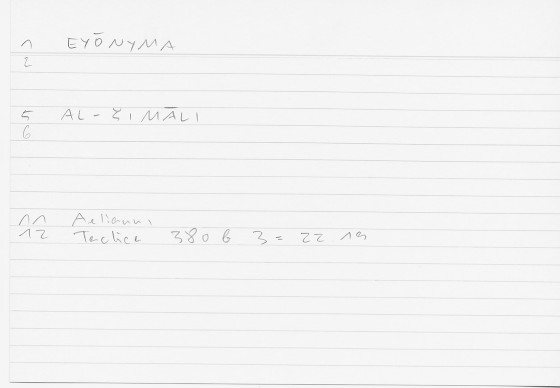 1 EYŌNYMA
2
5 AL-ŠIMĀLI
6
11 Aeliani
12 Tactica 380 B 3 = 22 19